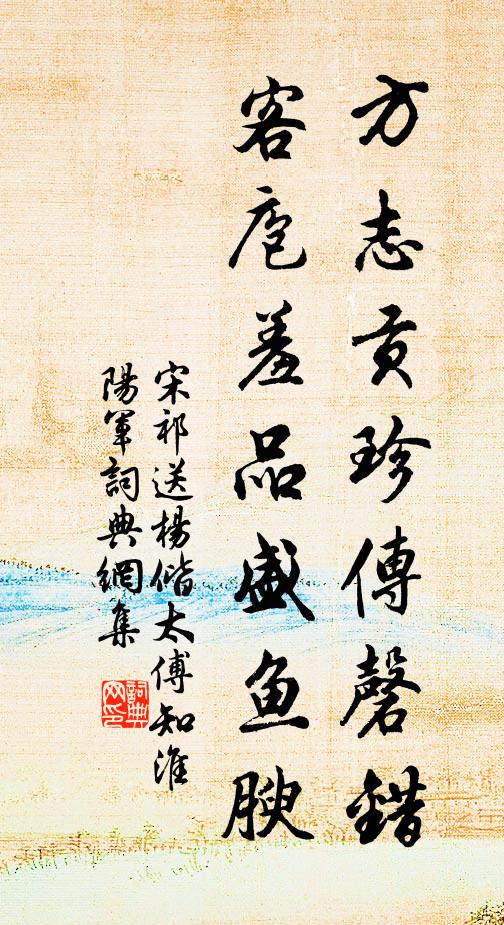 方志貢珍傳磬錯
客庖羞品盛魚腴
宋祁送楊偕太傅知淮
陽軍詞典網集
詞典
网印